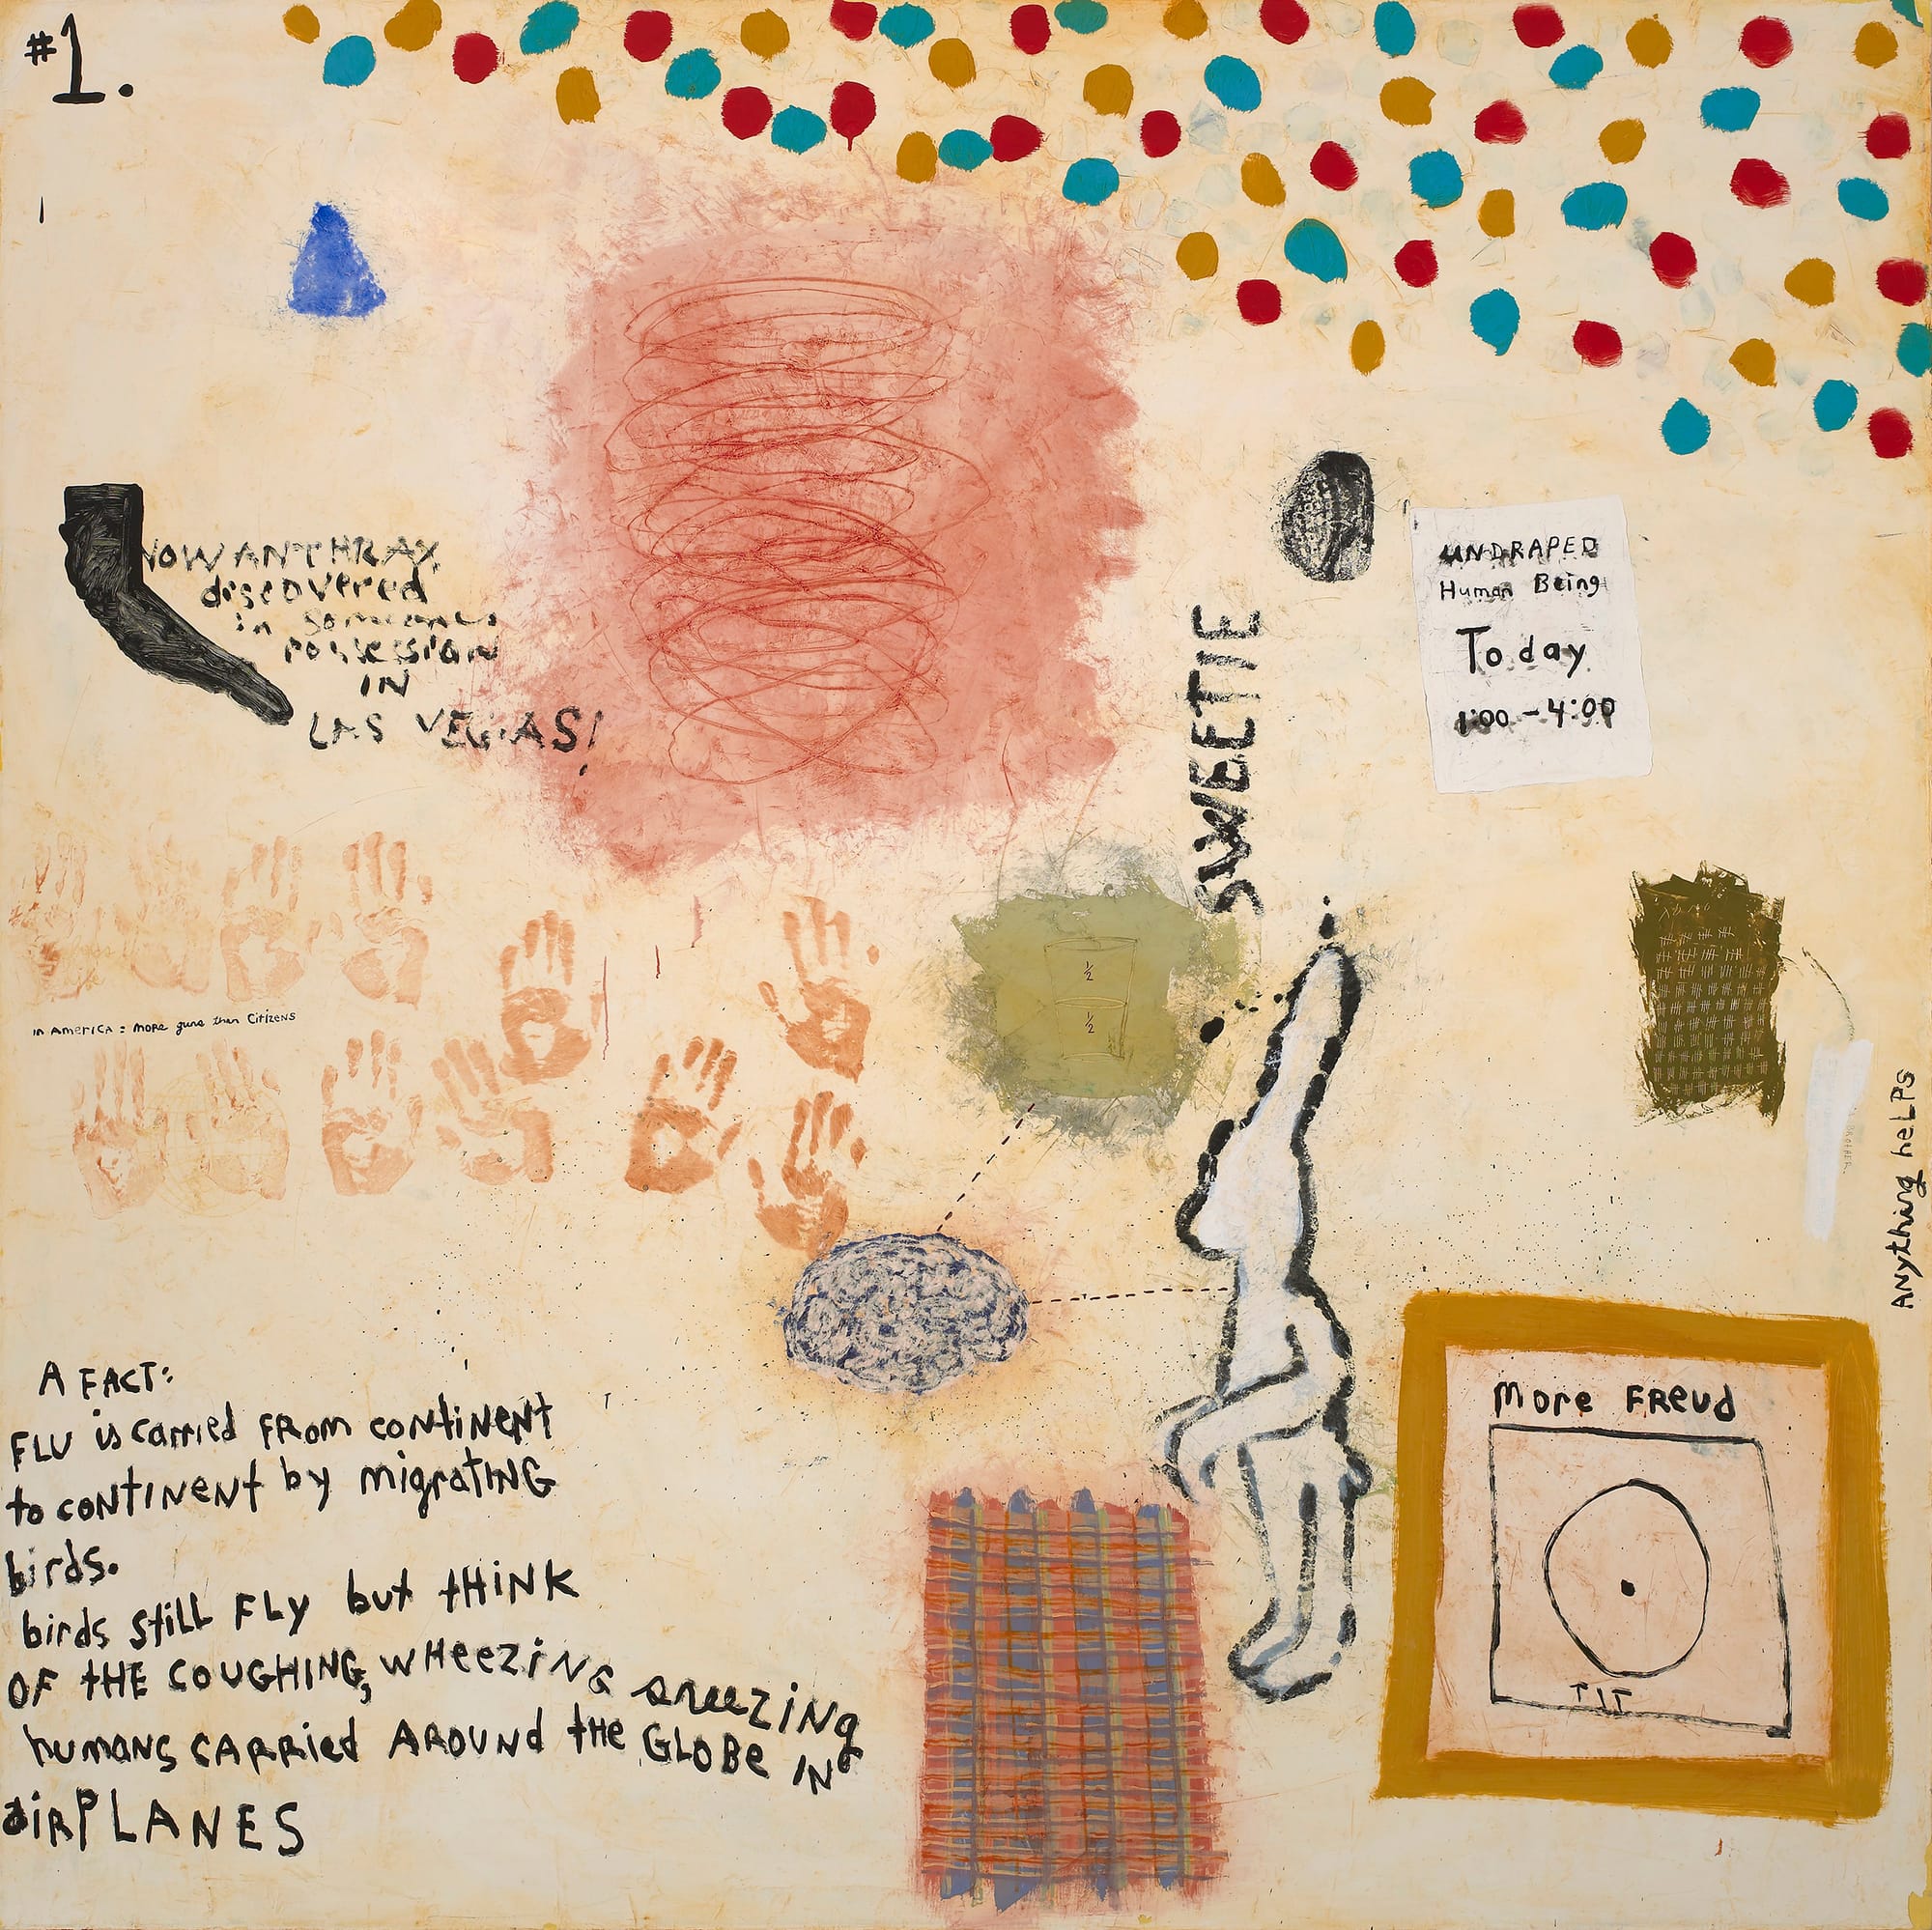 #1.
NOW ANTHRAX
discovered
in someones
possession
IN
LAS VEGAS!
SWEETIE
UNDRAPED
Human Being
Today
1:00 - 4:00
1/2
1/2
in America: more guns than Citizens
Anything helps
A FACT:
FLU is carried FROM continent
to continent by migrating
birds.
birds still FLY but tHINK
OF tHE COUGHING, wHeezing sneezing
humans CARRied AROUND tHe GLOBe IN
airPLANES
More FReud
TIT